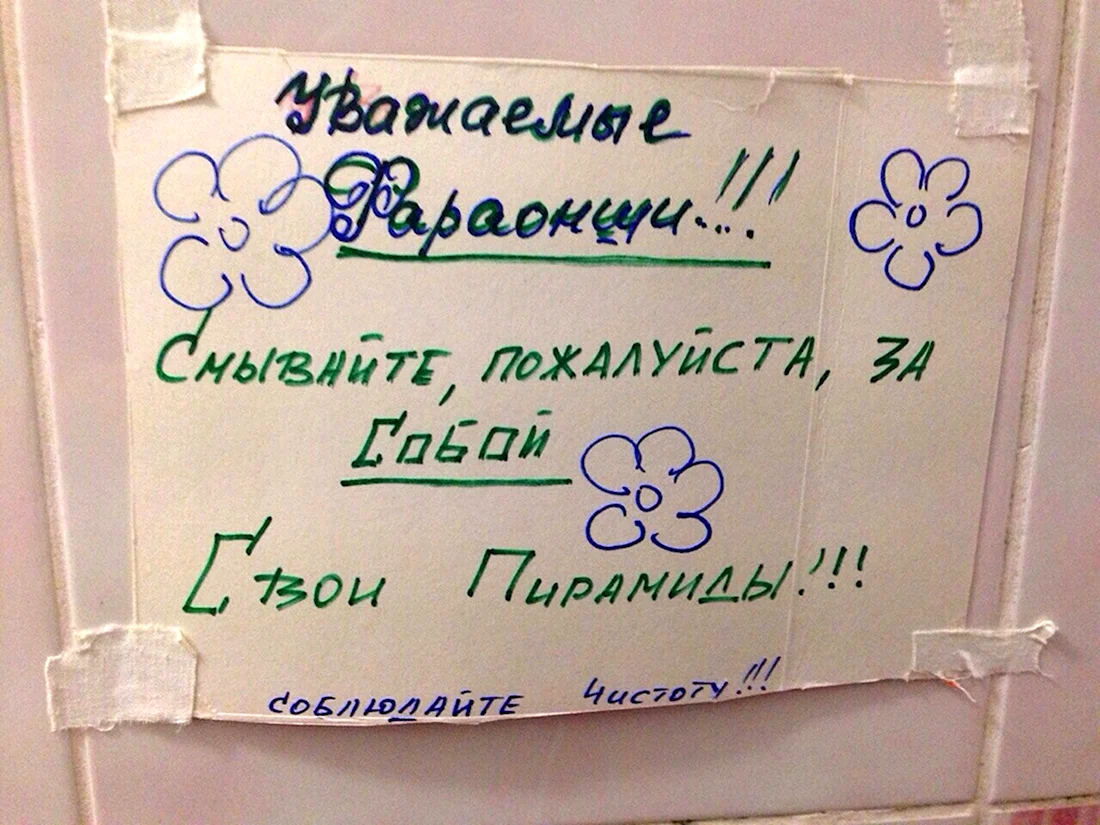 Уважаемые
Фараонши!!!
Смывайте, пожалуйста, за
Собой
Свои Пирамиды!!!
соблюдайте Чистоту!!!